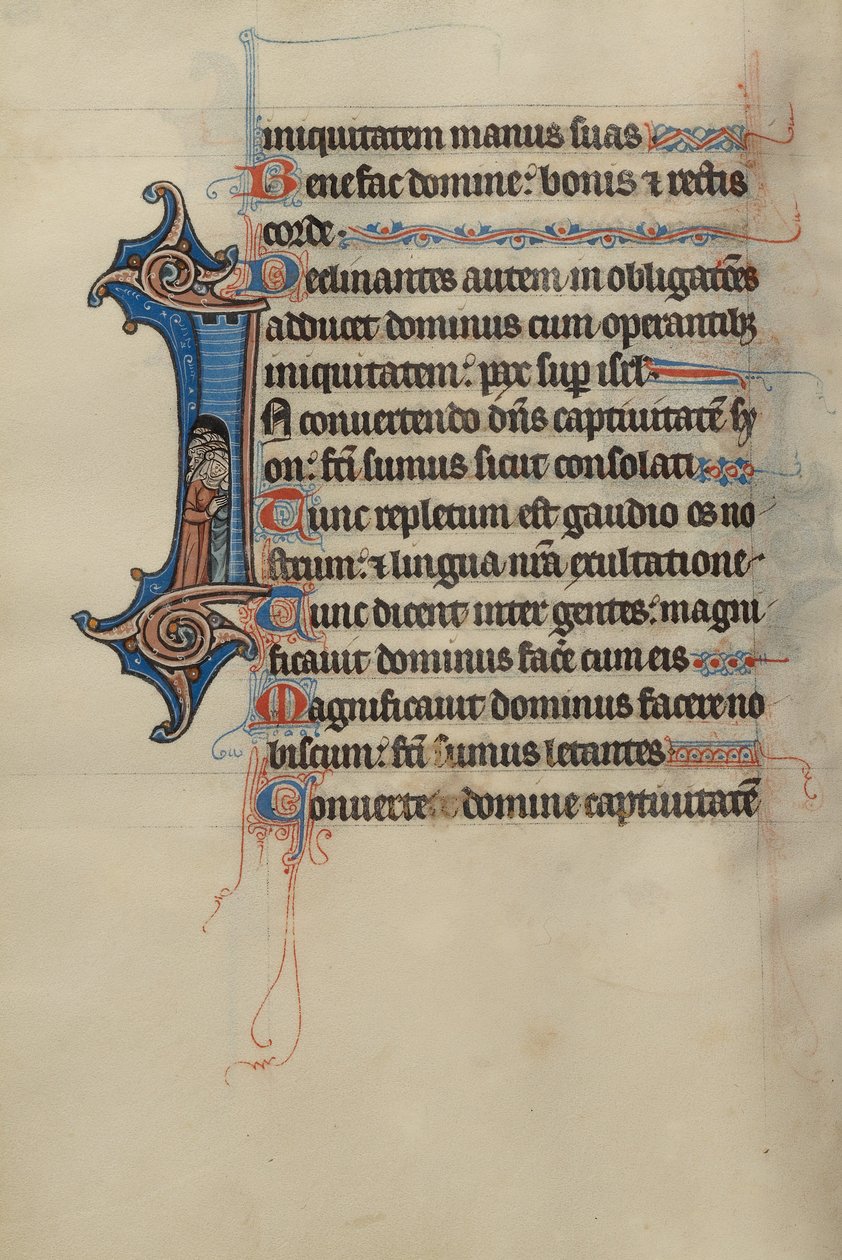 iniquitatem manus suas
Benefac domine: bonis ⁊ rectis
corde.
Declinantes autem in obligatōēs
adducet dominus cum operantibꝫ
iniquitatem: pax suꝑ isrl̄.
IN conuertendo dn̄s captiuitatē sy
on: fcī sumus sicut consolati
Tunc repletum est gaudio os no
strum: ⁊ lingua nr̄a exultatione
Tunc dicent inter gentes: magni
ficauit dominus facēe cum eis
Magnificauit dominus facere no
biscum: fcī sumus letantes
Conuerte domine captiuitatē